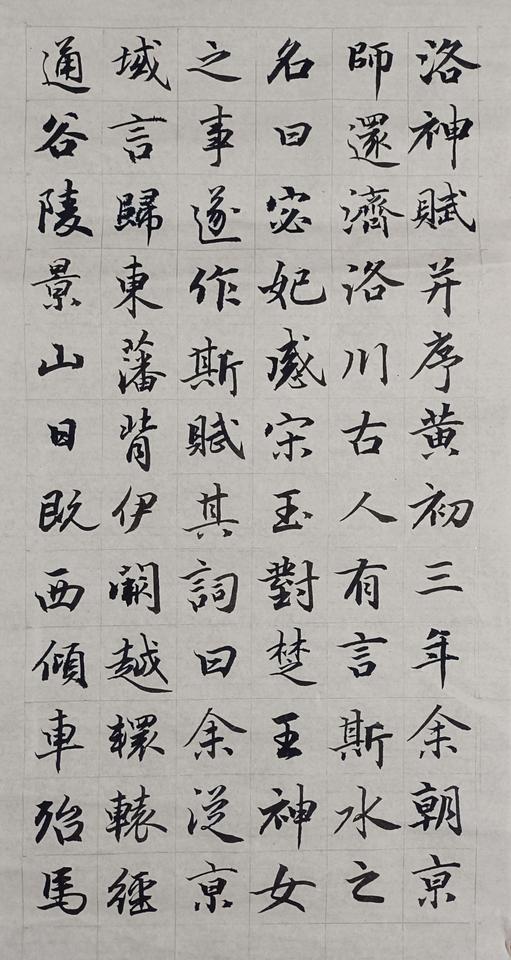 洛神賦并序黄初三年余朝京
師還濟洛川古人有言斯水之
名曰宓妃感宋玉對楚王神女
之事遂作斯賦其詞曰余従京
域言歸東藩背伊闕越轘轅經
通谷陵景山日既西傾車殆馬